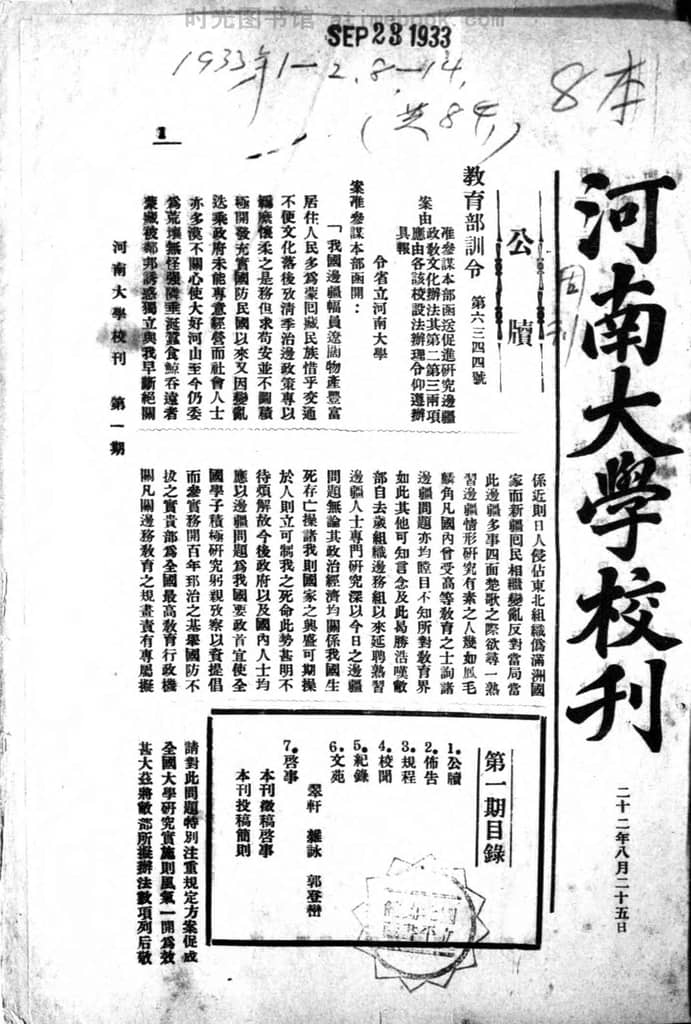 时光图书馆 atimebook.com
SEP 23 1933
1933年1—2,8—14,
(共84,)
8本
1
河南大學校刊
周刊
二十二年八月二十五日
公牘
教育部訓令 第六三四四號
准參謀本部函送促進研究邊疆
政教文化辦法其第二第三兩項
應由各該校設法辦理令仰遵辦
具報
案由
令省立河南大學
案准參謀本部函開:
「我國邊疆幅員遼闊物產豐富
居住人民多為蒙回藏民族惜乎交通
不便文化落後致清季治邊政策專以
羈縻懷柔之是務但求苟安並不圖積
極開發充實國防民國以來又因變亂
迭乘政府未能專意經營而社會人士
亦多漠不關心使大好河山至今仍委
為荒壤無怪強鄰垂涎蠶食鯨吞遠者
蒙藏被鄰邦誘惑獨立與我早斷絕關
係近則日人侵佔東北組織偽滿洲國
家而新疆回民相繼變亂反對當局當
此邊疆多事四面楚歌之際欲尋一熟
習邊疆情形研究有素之人幾如鳳毛
麟角凡國內曾受高等敎育之士詢諸
邊疆問題亦均瞠目不知所對敎育界
如此其他可知言念及此曷勝浩嘆敝
部自去歲組織邊務組以來延聘熟習
邊疆人士專門研究深以今日之邊疆
問題無論其政治經濟均關係我國生
死存亡操諸我則國家之興盛可期操
於人則立可制我之死命此勢甚明不
待煩解故今後政府以及國內人士均
應以邊疆問題為我國要政首宜使全
國學子積極研究躬親攷察以資提倡
而參實務開百年郅治之基鞏國防不
拔之實貴部為全國最高敎育行政機
關凡關邊務敎育之規畫責有專屬擬
請對此問題特別注重規定方案促成
全國大學研究實施則風氣一開為效
甚大茲將敝部所擬辦法數項列后敬
第一期目錄
1.公牘
2.佈告
3.規程
4.校聞
5.紀錄
6.文苑
翠軒 雜詠 郭登巒
7.啓事
本刊徵稿啓事
本刊投稿簡則
河南大學校刊 第一期